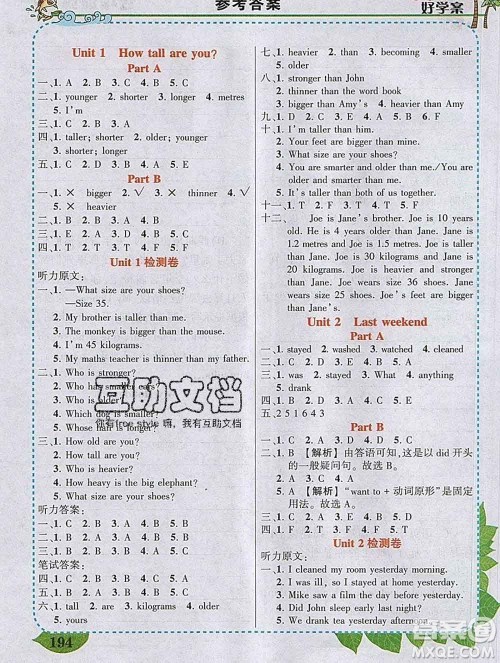 参考答案
好学案
Unit 1 How tall are you?
Part A
一、1. A 2. B 3. C 4. C 5. B
二、1. younger 2. shorter 3. longer 4. metres
5. I'm
三、1. C 2. B 3. C 3. A
四、1. taller; shorter 2. longer; shorter
3. shorter; longer
五、1. C 2. B 3. A 4. B 5. C
Part B
一、1. × bigger 2. √ 3. × thinner 4. √
5. × heavier
二、1. B 2. B 3. D 4. A 5. C
三、1. C 2. A 3. B 4. C 5. A
四、1. T 2. T 3. F 4. F 5. T
Unit 1 检测卷
听力原文:
一、1. —What size are your shoes?
—Size 35.
2. My brother is taller than me.
3. The monkey is bigger than mine.
4. I'm 45 kilograms.
5. My maths teacher is thinner than my father.
二、1. Who is stronger?
2. Who has smaller ears?
3. Who is older
4. Which dog is smaller?
5. Who is longer?
三、1. How old are you?
2. How tall are you?
3. Who is heavier?
4. How heavy is the big elephant?
5. What size are your shoes?
听力答案:
一、1. C 2. B 3. A 4. B 5. C
二、1. B 2. A 3. A 4. B 5. A
三、1. B 2. C 3. A 4. B 5. C
笔试答案:
四、1. C 2. A 3. D 4. B 5. C
五、1. C 2. B 3. A 4. C 5. B
六、1. taller 2. are 3. kilograms 4. older
5. yours
194
七、1. heavier 2. than 3. becoming 4. smaller
5. older
八、1. stronger than John
2. thinner than the word book
3. bigger than Amy's 4. heavier than Amy
九、1. C 2. A 3. B 4. E 5. D
十、1. B 2. A 3. C 4. D 5. E
十一、1. I'm taller than him.
2. Your feet are bigger than mine.
3. What size are your shoes?
4. You are smarter and older than me./You
are older and smarter than me.
5. It's taller than both of us together.
十二、 Joe is Jane's brother. Joe is 10 years
old. He is 4 years older than Jane. Jane is
1.2 metres and Joe is 1.5 metres. Joe is
taller than Jane. Jane is 20 kilograms and
Joe is 30 kilograms and Joe is heavier than
Jane. Joe wears size 36 shoes and Jane
wears size 25 shoes. Joe's feet are bigger
than Jane's.
Unit 2 Last weekend
Part A
一、1. stayed 2. washed 2. watched 4. cleaned
5. drank
三、1. was 2. stayed 3. anything 4. What
四、1. B 2. A 3. A 4. C 5. B
五、2 5 1 6 4 3
Part B
一、1. B 【解析】由答语可知,这是以 did 开头
的一般疑问句。故选 B。
2. C 3. B 4. A
5. A 【解析】“want to + 动词原形”是固定
用法。故选 A。
三、1. D 2. B 3. E 4. C 5. A
四、1. F 2. T 3. T 4. F 5. F
Unit 2 检测卷
听力原文:
一、1. I cleaned my room yesterday morning.
2. I was ill, so I stayed at home yesterday.
3. Mike saw a film the day before yesterday.
4. Did John sleep early last night?
5. We drank tea yesterday afternoon.
互助文档
你有free style 嗨,我有互助文档
答案圈
MXQE.COM